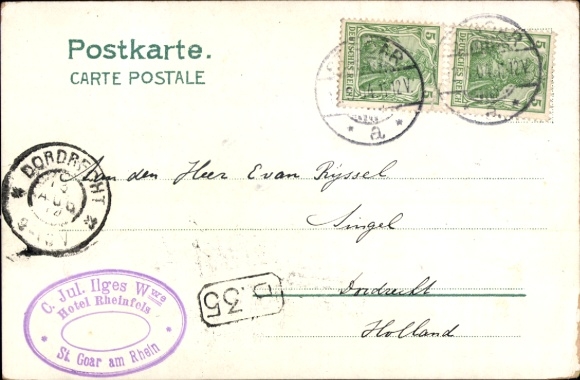 Postkarte.
CARTE POSTALE
5 DEUTSCHES REICH 5
5 DEUTSCHES REICH 5
a
DORDRECHT
AUG
Aan den Heer E van Rijssel
Singel
Dordrecht
Holland
D.35
C. Jul. Ilges Wwe
Hotel Rheinfels
St. Goar am Rhein